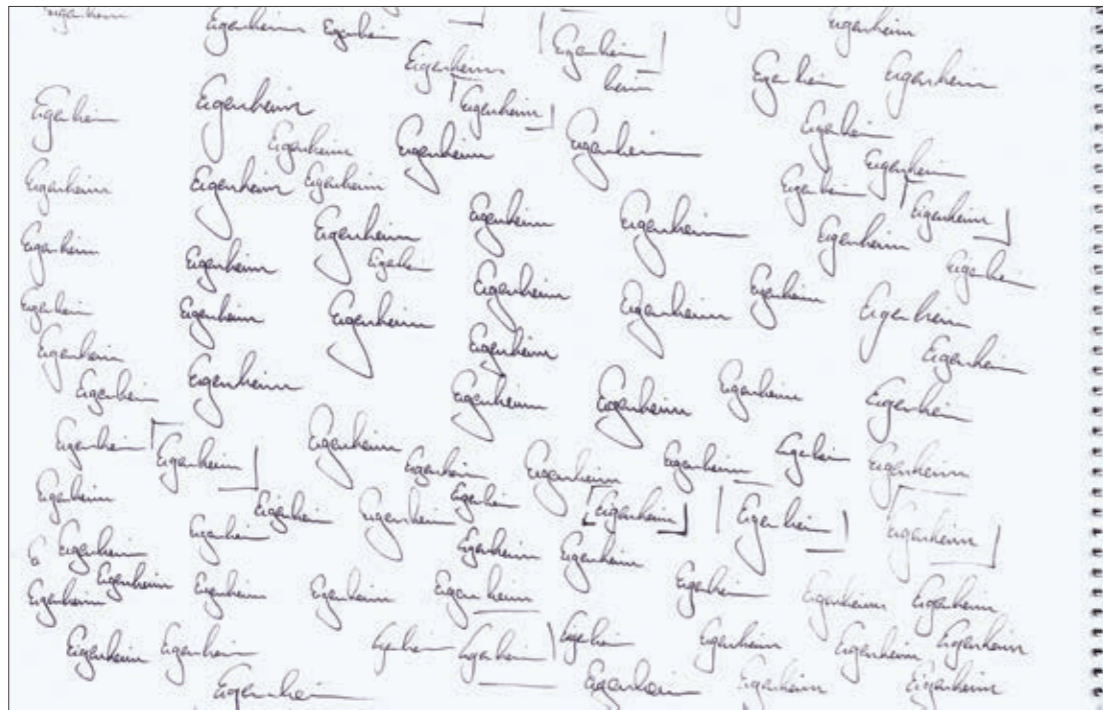 Eigenheim Eigenheim Eigenheim Eigenheim Eigenheim
Eigenheim heim Eigenheim Eigenheim
Eigenheim Eigenheim Eigenheim
Eigenheim Eigenheim Eigenheim Eigenheim
Eigenheim Eigenheim Eigenheim Eigenheim Eigenheim
Eigenheim Eigenheim Eigenheim Eigenheim Eigenheim
Eigenheim Eigenheim Eigenheim Eigenheim
Eigenheim Eigenheim
Eigenheim Eigenheim Eigenheim Eigenheim Eigenheim
Eigenheim Eigenheim Eigenheim
Eigenheim Eigenheim Eigenheim Eigenheim Eigenheim Eigenheim
Eigenheim Eigenheim Eigenheim Eigenheim Eigenheim Eigenheim Eigenheim Eigenheim
Eigenheim Eigenheim Eigenheim Eigenheim Eigenheim Eigenheim Eigenheim
Eigenheim Eigenheim Eigenheim Eigenheim
Eigenheim Eigenheim Eigenheim Eigenheim Eigenheim Eigenheim Eigenheim Eigenheim
Eigenheim Eigenheim Eigenheim Eigenheim Eigenheim Eigenheim Eigenheim Eigenheim
Eigenheim Eigenheim Eigenheim Eigenheim